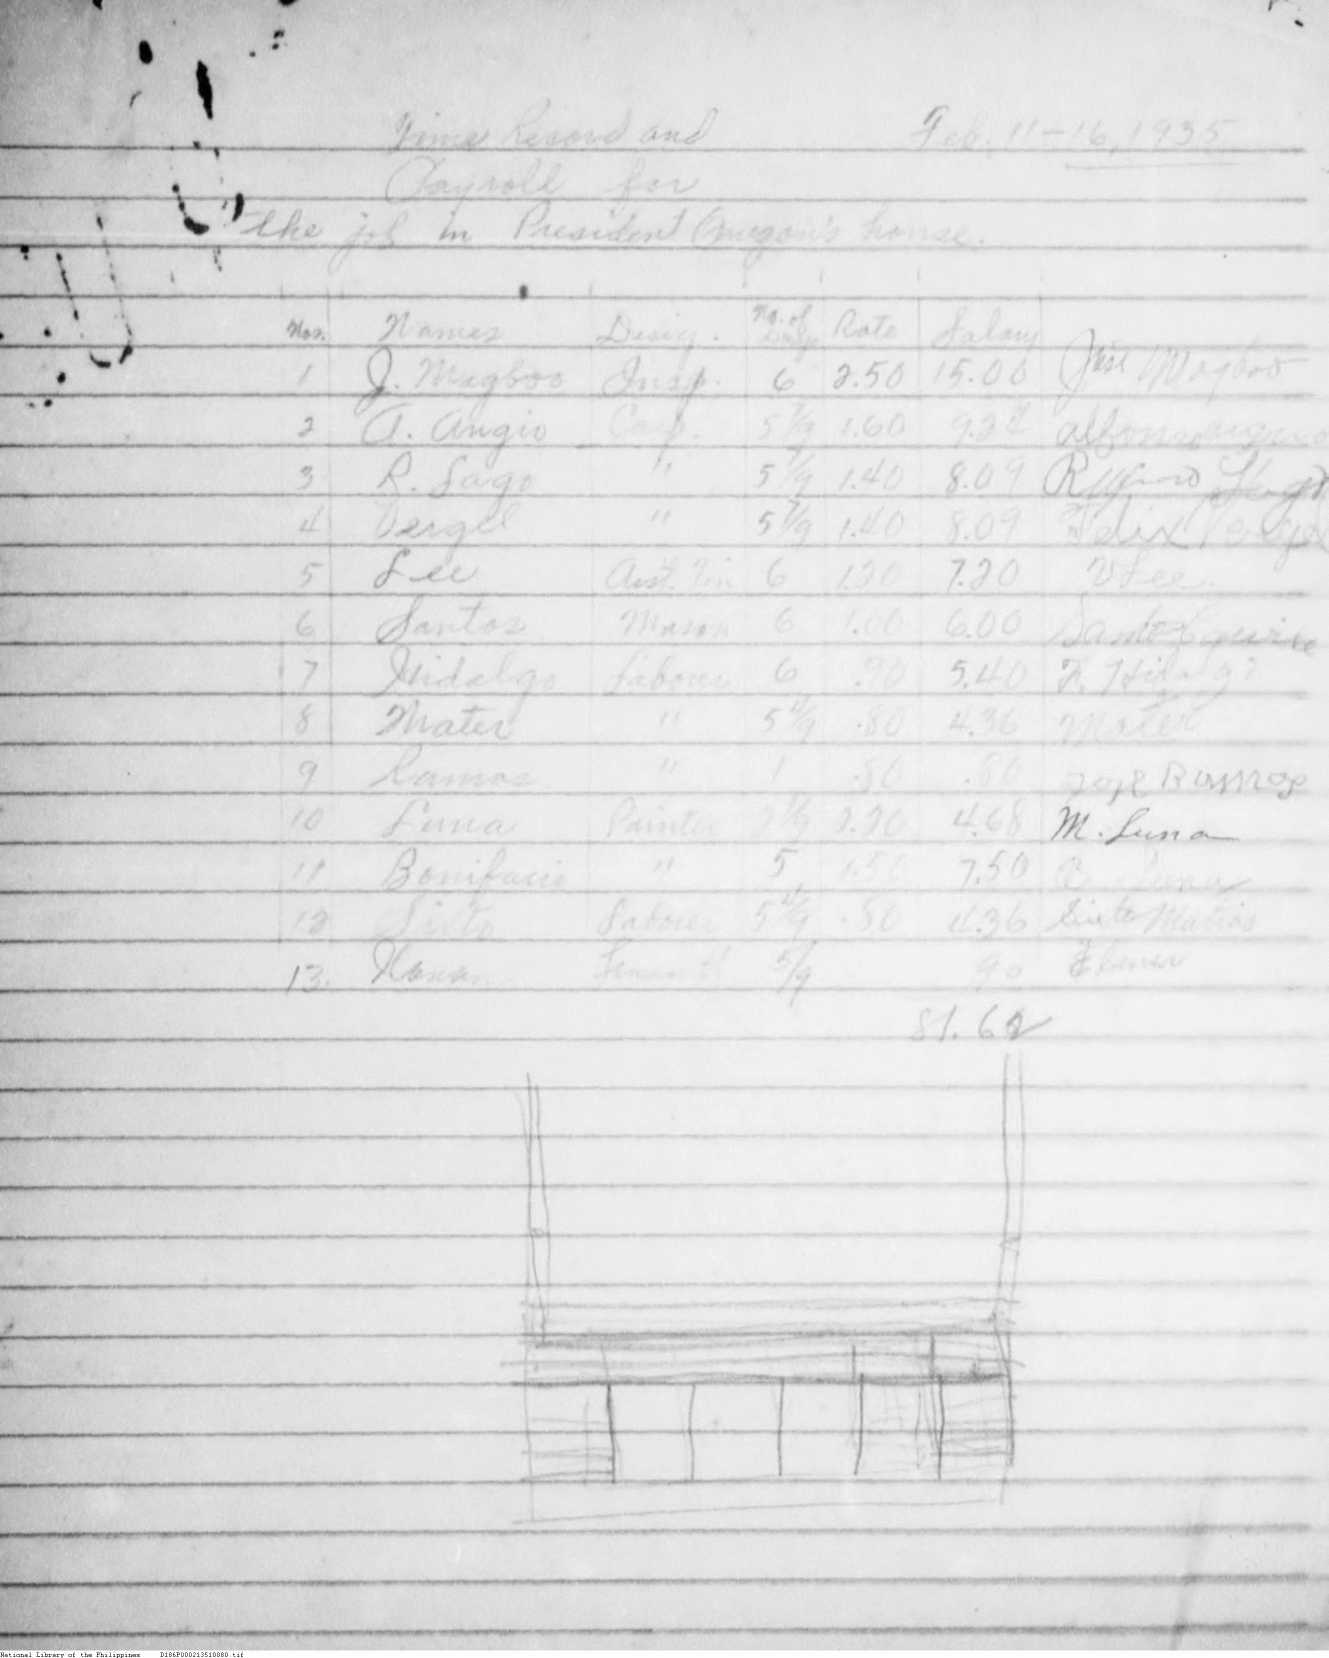 Time Record and Feb. 11-16, 1935
Payroll for
the job in President house.
Nos. Names Desig. No. of Days Rate Salary
1 J. Magboo Insp. 6 2.50 15.00 Jose Magboo
2 A. Angio Carp. 5 7/9 1.60 9.24 Alfonso
3 R. Sago " 5 7/9 1.40 8.09
4 Vergel " 5 7/9 1.40 8.09 Felix Vergel
5 Lee 6 1.20 7.20 V Lee.
6 Santos Mason 6 1.00 6.00 Santos
7 Hidalgo Laborer 6 .90 5.40
8 Mater " 5 4/9 .80 4.36 Mater
9 Ramos " 1 .80 .80 Jose Ramos
10 Luna Painter 2.20 4.68 M. Luna
11 Bonifacio " 5 1.50 7.50 B. Luna
12 Sixto Laborer 5 4/9 .80 4.36 Sixto Matias
13. 5/9 90
81.62
National Library of the Philippines D186P000213510080.tif